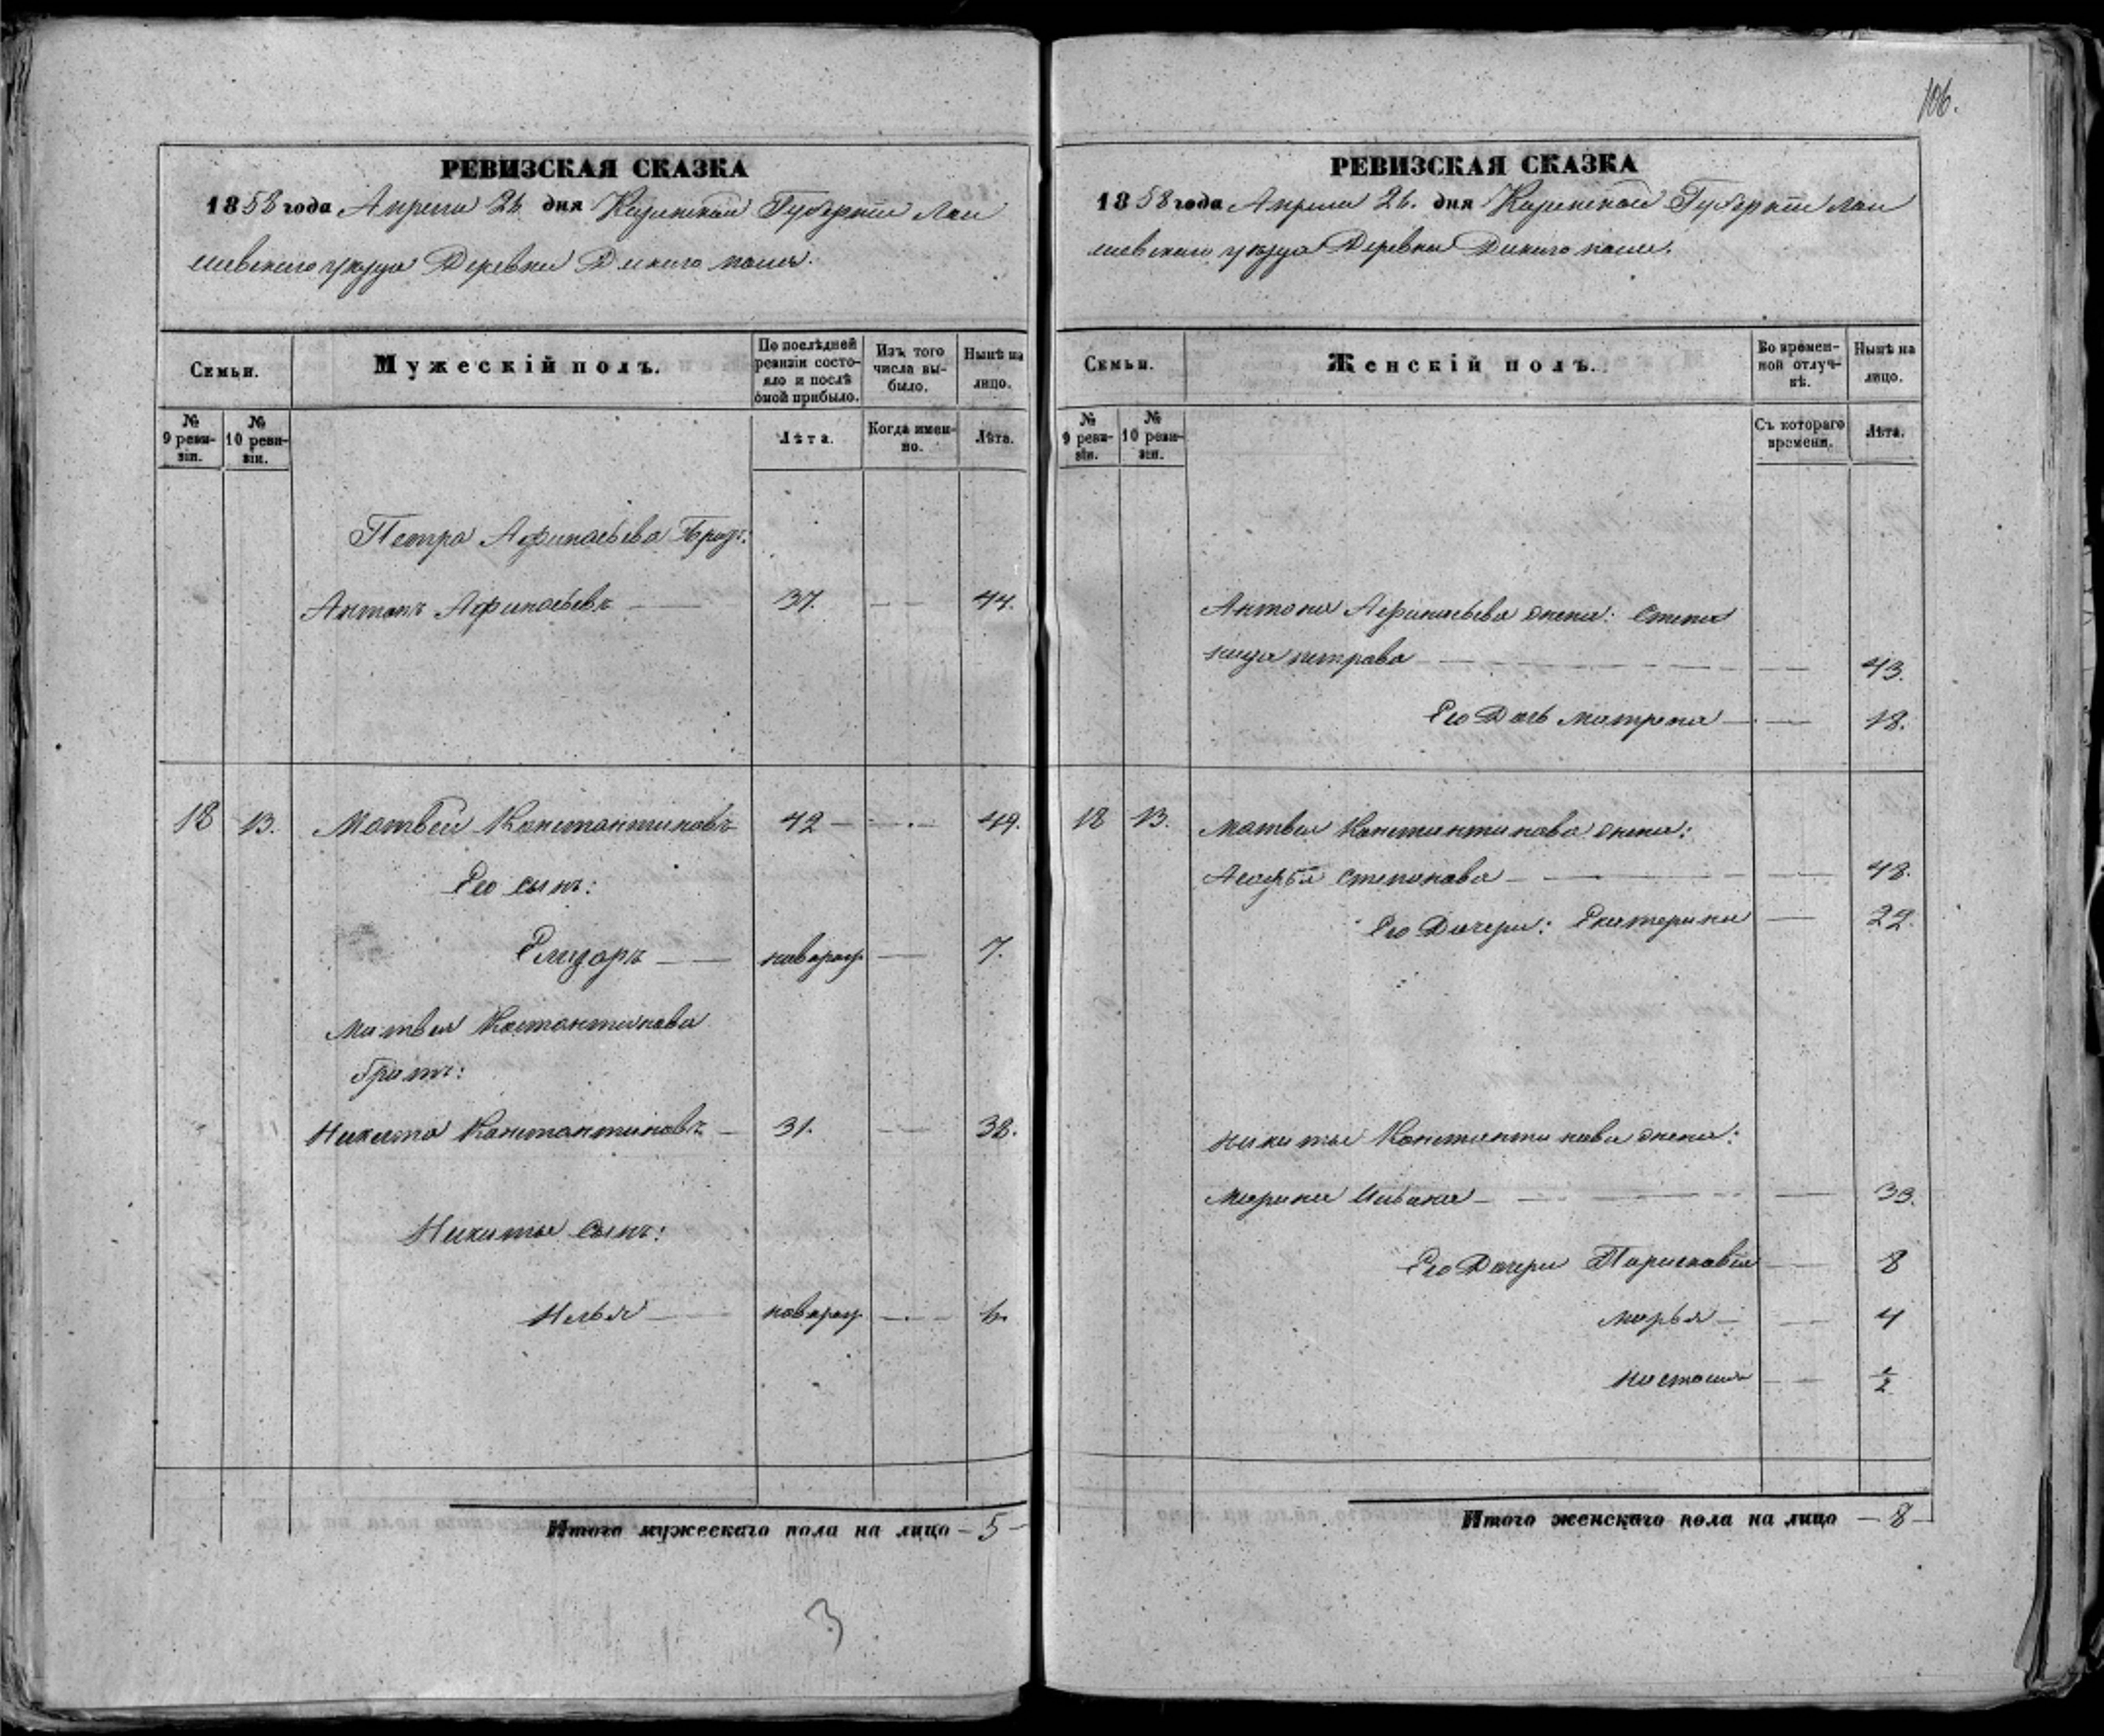 106.
РЕВИЗСКАЯ СКАЗКА
1858 года Апреля 26 дня Казанской Губернiи Лаи
шевскаго уѣзда Деревни Дикаго поля.
Семьи.
Мужескiй полъ.
По послѣдней ревизiи состояло и послѣ оной прибыло.
Изъ того числа выбыло.
Нынѣ на лицо.
№ 9 ревизiи.
№ 10 ревизiи.
Лѣта.
Когда именно.
Лѣта.
Петра Афанасьева Братъ:
Антонъ Афанасьевъ 37. 44.
18 13. Матвей Константиновъ 42 49.
Его сынъ:
Елизаръ новорож 7.
Матвея Костантинова
братъ:
Никита Константиновъ 31. 38.
Никиты сынъ:
Илья новорож 6.
Итого мужескаго пола на лицо - 5 -
3
РЕВИЗСКАЯ СКАЗКА
1858 года Апреля 26. дня Казанской Губернiи Лаи
шевскаго уѣзда Деревни Дикаго поля.
Семьи.
Женскiй полъ.
Во временной отлучкѣ.
Нынѣ на лицо.
№ 9 ревизiи.
№ 10 ревизiи.
Съ котораго времени.
Лѣта.
Антона Афанасьева жена: Степа
нида петрова 43.
Его Дочь матрена 18.
18 13. Матвея Константинова жена:
Агафья степанова 48.
Его Дочери: Екатерина 22.
никиты Константинова жена:
Марина 33.
Его Дочери Парасковiя 8
марья 4
настасья 1/2
Итого женскаго пола на лицо - 8 -